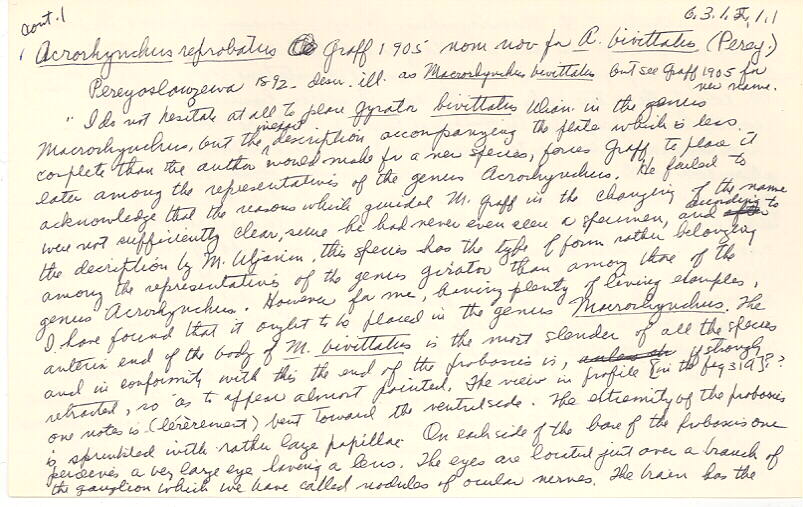 cont. 1
6.3.1.I.1.1
Acrorhynchus reprobatus Graff 1905 nom nov for A. bivittatus (Perey.)
Pereyoslawzewa 1892 descr. ill. as Macrorhynchus bivittatus but see Graff 1905 for
new name.
" I do not hesitate at all to place Gyrator bivittatus Ulian. in the genus
Macrorhynchus, but the inexact description accompanying the plate which is less
complete than the author would make for a new species, forces Graff to place it
later among the representatives of the genus Acrorhynchus. He failed to
acknowledge that the reasons which guided M. Graff in the changing of the name
were not sufficiently clear, since he had never even seen a specimen, and according to
the decription by M. Uljanin, this species has the type of form rather belonging
among the representatives of the genus girator than among those of the
genus Acrorhynchus. However for me, having plenty of living examples,
I have found that it ought to be placed in the genus Macrorhynchus. The
anterior end of the body of M. bivittatus is the most slender of all the species
and in conformity with this the end of the proboscis is, if strongly
retracted, so as to appear almost pointed. The view in profile [in the fig 319]??
one notes is (lérèrement) bent toward the ventral side. The extremity of the proboscis
is sprinkled with rather large papillae. On each side of the base of the proboscis one
perceives a very large eye having a lens. The eyes are located just over a branch of
the ganglion which we have called nodules of ocular nerves. The brain has the